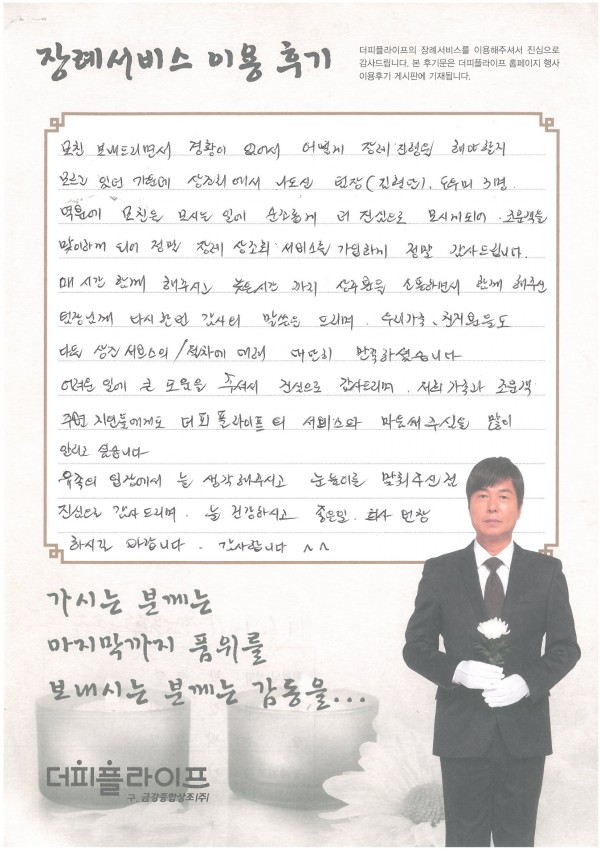 장례서비스 이용 후기
더피플라이프의 장례서비스를 이용해주셔서 진심으로
감사드립니다. 본 후기문은 더피플라이프 홈페이지 행사
이용후기 게시판에 기재됩니다.
모친 보내드리면서 경황이 없어서 어떻게 장례 진행을 해야 할지
모르고 있던 가운데 상조회에서 나오신 팀장(진철민), 도우미 3명
덕분에 모친을 모시는 일에 순조롭게 더 진심으로 모시게되어. 조문객을
맞이하게 되어 정말 장례 상조회 서비스를 가입하게 정말 감사드립니다.
매 시간 함께 해주시고 늦은시간 까지 상주분들 소통하면서 함께 해주신
팀장님께 다시한번 감사의 말씀을 드리며. 우리가족, 친지분들도
다들 상조 서비스의 절차에 대해 대단히 만족하셨습니다
어려운 일에 큰 도움을 주셔서 진심으로 감사드리며. 저희 가족과 조문객
주변 지인들에게도 더피플라이프의 서비스와 마음써주심을 많이
알리고 싶습니다
유족의 입장에서 늘 생각해주시고 눈높이를 맞춰주신 점
진심으로 감사드리며. 늘 건강하시고 좋은일. 회사 번창
하시길 바랍니다. 감사합니다 ^^
가시는 분께는
마지막까지 품위를
보내시는 분께는 감동을...
더피플라이프
구. 금강종합상조(주)